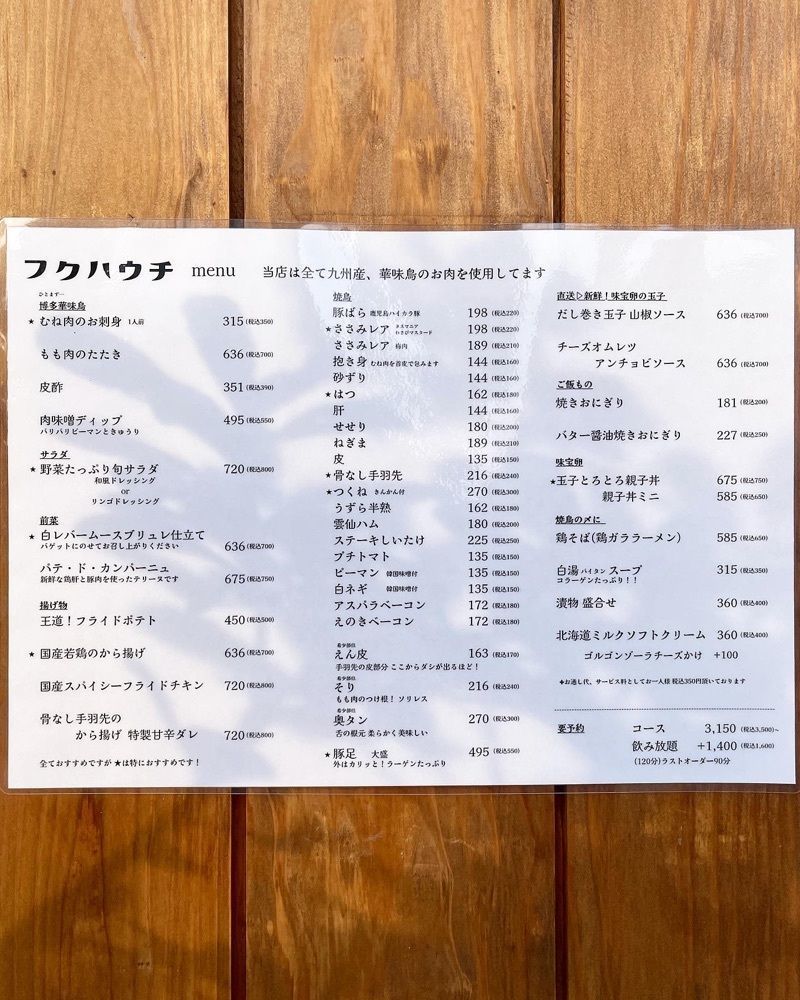 フクハウチ menu 当店は全て九州産、華味鳥のお肉を使用してます
ひとまずー
博多華味鳥
★むね肉のお刺身 1人前 315(税込350)
もも肉のたたき 636(税込700)
皮酢 351(税込390)
肉味噌ディップ 495(税込550)
パリパリピーマンときゅうり
サラダ
★野菜たっぷり旬サラダ 720(税込800)
和風ドレッシング
or
リンゴドレッシング
前菜
★白レバームースブリュレ仕立て
バゲットにのせてお召し上がりください 636(税込700)
パテ・ド・カンパーニュ
新鮮な鶏肝と豚肉を使ったテリーヌです 675(税込750)
揚げ物
王道！フライドポテト 450(税込500)
★国産若鶏のから揚げ 636(税込700)
国産スパイシーフライドチキン 720(税込800)
骨なし手羽先の
から揚げ 特製甘辛ダレ 720(税込800)
全ておすすめですが ★は特におすすめです！
焼鳥
豚ばら 鹿児島ハイカラ豚 198(税込220)
★ささみレア タスマニア わさびマスタード 198(税込220)
ささみレア 梅肉 189(税込210)
抱き身 むね肉を首皮で包みます 144(税込160)
砂ずり 144(税込160)
★はつ 162(税込180)
肝 144(税込160)
せせり 180(税込200)
ねぎま 189(税込210)
皮 135(税込150)
★骨なし手羽先 216(税込240)
★つくね きんかん付 270(税込300)
うずら半熟 162(税込180)
雲仙ハム 180(税込200)
ステーキしいたけ 225(税込250)
プチトマト 135(税込150)
ピーマン 韓国味噌付 135(税込150)
白ネギ 韓国味噌付 135(税込150)
アスパラベーコン 172(税込180)
えのきベーコン 172(税込180)
希少部位
えん皮 163(税込170)
手羽先の皮部分 ここからダシが出るほど！
希少部位
そり 216(税込240)
もも肉のつけ根！ソリレス
希少部位
奥タン 270(税込300)
舌の根元 柔らかく美味しい
★豚足 大盛 495(税込550)
外はカリッと！ラーゲンたっぷり
直送▷新鮮！味宝卵の玉子
だし巻き玉子 山椒ソース 636(税込700)
チーズオムレツ
アンチョビソース 636(税込700)
ご飯もの
焼きおにぎり 181(税込200)
バター醤油焼きおにぎり 227(税込250)
味宝卵
★玉子とろとろ親子丼 675(税込750)
親子丼ミニ 585(税込650)
焼鳥の〆に
鶏そば(鶏ガララーメン) 585(税込650)
白湯パイタンスープ 315(税込350)
コラーゲンたっぷり！！
漬物 盛合せ 360(税込400)
北海道ミルクソフトクリーム 360(税込400)
ゴルゴンゾーラチーズかけ +100
◆お通し代、サービス料としてお一人様 税込350円頂いております
要予約 コース 3,150(税込3,500)~
飲み放題 +1,400(税込1,600)
(120分)ラストオーダー90分